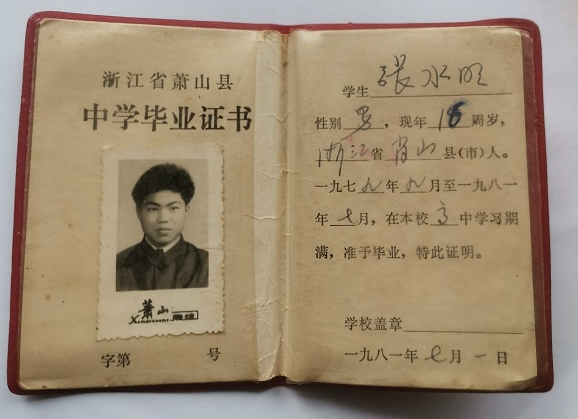 浙江省萧山县
中学毕业证书
萧山
字第 号
学生 张水旺
性别 男，现年 18 周岁，
浙江省肖山县(市)人。
一九七九年九月至一九八一
年七月，在本校高中学习期
满，准予毕业，特此证明。
学校盖章
一九八一年七月一日